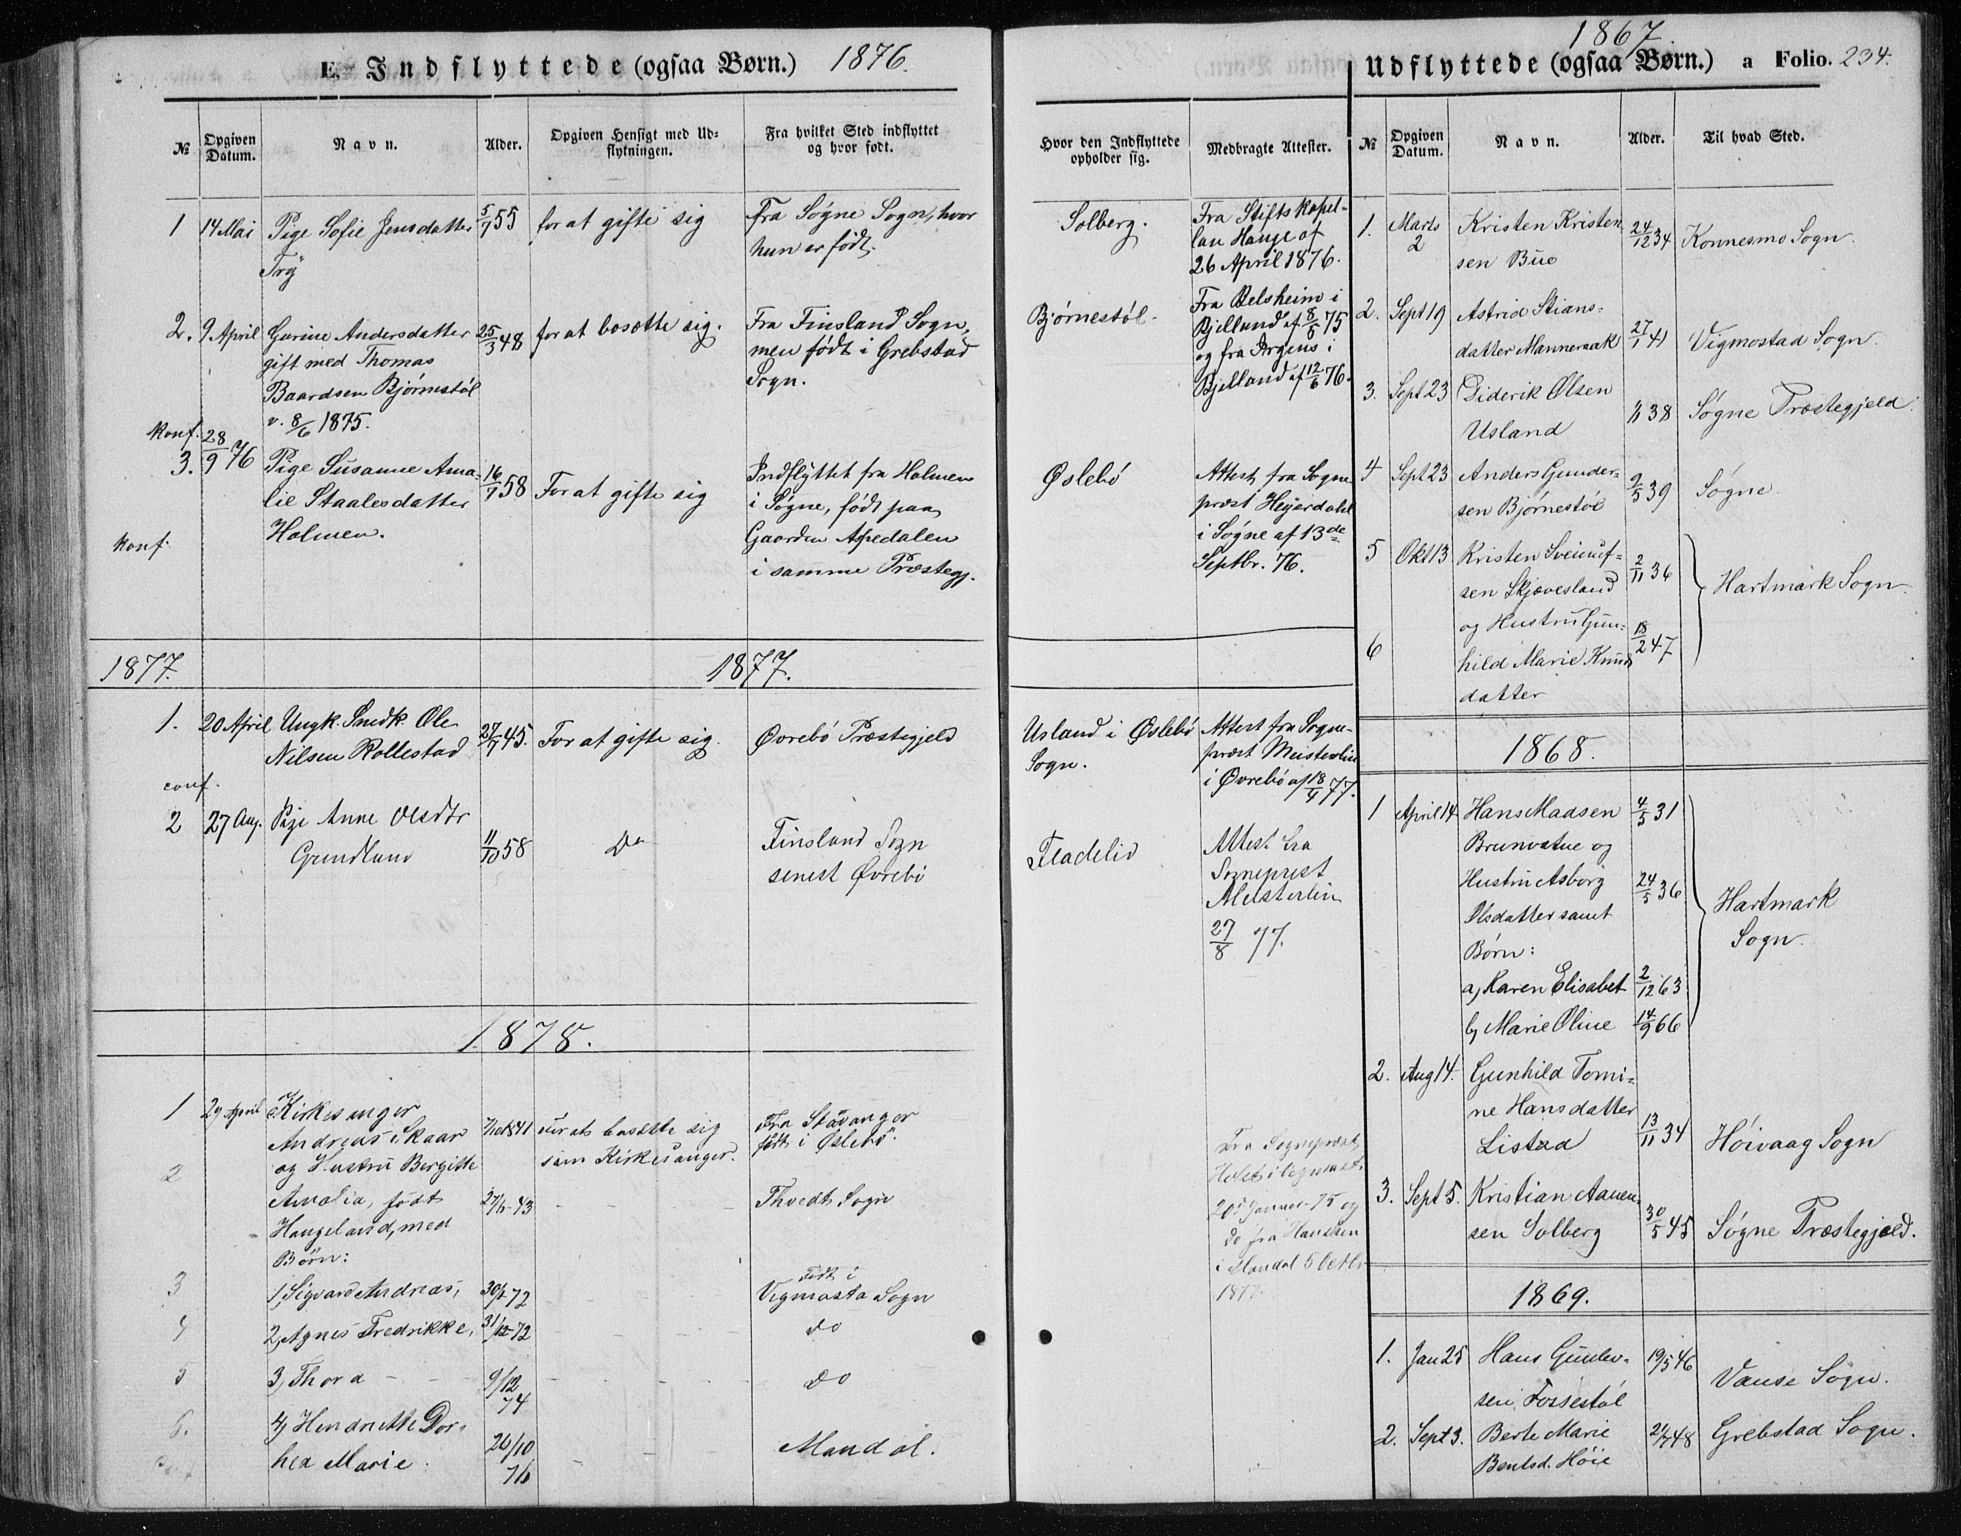 E. Indflyttede (ogsaa Børn.) 1876.
№
Opgiven Datum.
Navn.
Alder.
Opgiven Hensigt med Ud-
flytningen.
Fra hvilket Sted indflyttet
og hvor født.
Hvor den Indflyttede
opholder sig.
Medbragte Attester.
1 14 Mai Pige Sofie Jensdatter 5/7 55 for at gifte sig Fra Søgne Sogn, hvor Solberg. Fra Stiftskapel-
Try hun er født. lan Hauge af
26 April 1876.
2. 9 April Gurine Andersdatter 25/3 48 for at bosætte sig. Fra Finsland Sogn, Bjørnestøl. Fra Belsheim i
gift med Thomas men født i Grebstad Bjelland af 8/5 75
Baardsen Bjørnestøl Sogn. og fra i
v. 8/6 1875. Bjelland af 12/6 76.
konf. 28/9 76
3. Pige Susanne Ama- 16/7 58 For at gifte sig Indflyttet fra Holmen Øslebø Attest fra Sogne
lie Staalesdatter i Søgne, født paa præst Heyerdahl
Holmen. Gaarden Aspedalen i Søgne af 13de
konf. i samme Præstegj. Septbr. 76.
1877. 1877.
1. 20 April Ungk. Snedk. Ole 27/7 45. For at gifte sig. Øvrebø Præstegjeld Usland i Øslebø Attest fra Sogne-
Nilsen Rollestad Sogn. præst Meisterlin
conf. i Øvrebø af 18/4 77.
2 27 Aug. Pige Anne Olsdtr 11/10 58 Do Finsland Sogn Fladelid Attest fra
Grundland senest Øvrebø Sogneprest
Meisterlin
27/8 77.
1878.
1 29 April Kirkesanger
Andreas Skaar 1841 for at bosætte sig Fra Stavanger
2 og Hustru Bergitte som Kirkesanger. født i Øslebø.
Amalia, født 27/6 43 Thvedt Sogn
Haugeland, med
Børn:
Fra Sognepræst
Holst i Vegmost.
20de Januar 75 og
do fra Hanssen
i Mandal 5 Octbr
1877.
3 1, Sigvard Andreas, 30/1 72 født i
Vegmosta Sogn
4 2, Agnes Fredrikke, 31/12 72 do
5 3, Thora 9/12 74 do
6. 4, Hendriette Dor-
thea Marie. 20/10 76 Mandal.
1867.
Udflyttede (ogsaa Børn.) a Folio. 234.
№
Opgiven Datum.
Navn.
Alder.
Til hvad Sted.
1. Marts 2 Kristen Kristen- 24/12 34 Konnesmo Sogn.
sen Bue
2. Sept 19 Astrid Stians-
datter Manneraak 27/1 41 Vegmostad Sogn.
3. Sept 23 Diderik Olsen
Usland 38 Søgne Præstegjeld.
4 Sept 23 Anders Gunder- 9/5 39 Søgne.
sen Bjørnestøl
5 Okt 13 Kristen Sveinuf- 2/11 36
sen Skjævesland Hartmark Sogn.
og Hustru Gun- 18/2 47
6 hild Marie Knuds
datter
1868.
1 April 14 Hans Madsen 4/5 31
Brunvatne og
Hustru Asborg 24/5 36
Olsdatter samt Hartmark
Børn: Sogn.
a, Karen Elisabet 2/12 63
b, Marie Oline 14/9 66
2. Aug 14. Gunhild Tomi-
ne Hansdatter
Listad 13/11 34 Høivaag Sogn
3. Sept 5. Kristian Aanen-
sen Solberg 30/5 45 Søgne Præstegjeld.
1869.
1. Jan 25 Hans Gunder- 19/5 46
sen Fossestøl Vanse Sogn.
2. Sept 3. Berte Marie 2/7 48 Grebstad Sogn.
Bentsd. Høie